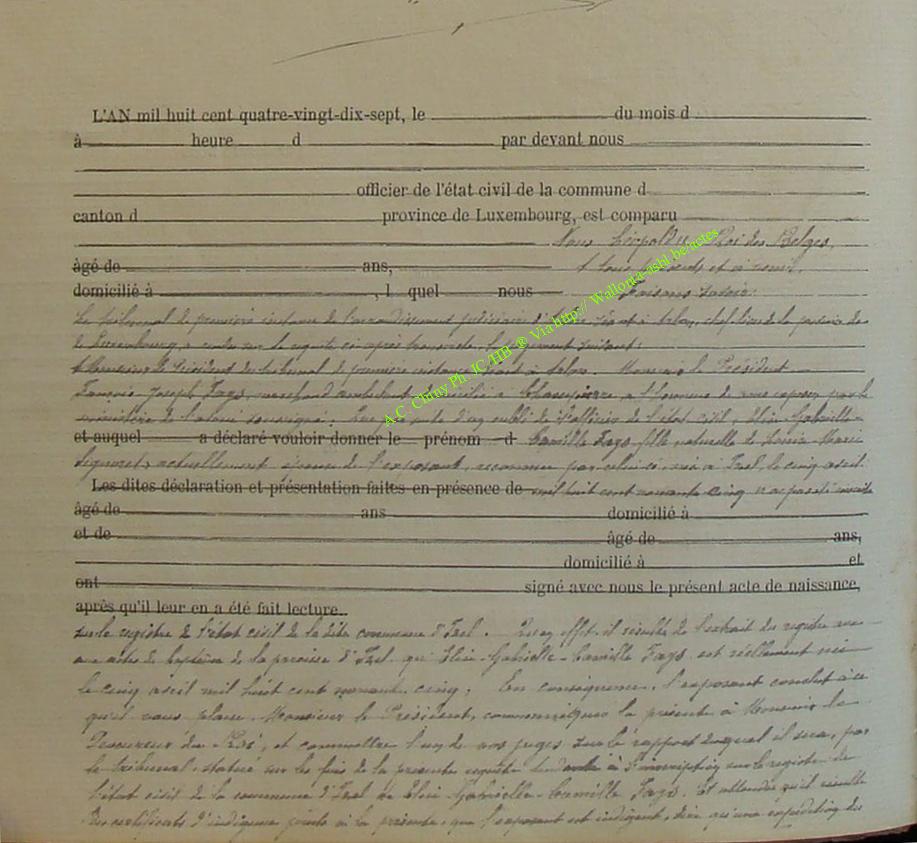 L'AN mil huit cent quatre-vingt-dix-sept, le du mois d
à heure d par devant nous
officier de l'état civil de la commune d
canton d province de Luxembourg, est comparu
Nous Léopold II, Roi des Belges,
âgé de ans, à tous présents et à venir,
domicilié à , l quel nous Faisons savoir:
Le tribunal de première instance de l'arrondissement judiciaire d'Arlon, séant à Arlon, chef lieu de la province de
de Luxembourg, a rendu sur la requête ci après transcrite, le jugement suivant:
A Monsieur le Président du tribunal de première instance séant à Arlon. Monsieur le Président
François Joseph Fays, marchand ambulant domicilié à a l'honneur de vous exposer par le
ministère de l'avoué soussigné: Que par suite d'un oubli de l'officier de l'état civil, Gabrielle
et auquel a déclaré vouloir donner le prénom d Camille Fays, fille naturelle de Louise Marie
actuellement épouse de l'exposant, reconnue par celui ci, née à Izel, le cinq avril
Les dites déclaration et présentation faites en présence de mil huit cent nonante cinq n'a pas été inscrite
âgé de ans domicilié à
et de âgé de ans,
domicilié à et
ont signé avec nous le présent acte de naissance,
après qu'il leur en a été fait lecture.
sur le registre de l'état civil de la dite commune d'Izel. Qu'en effet, il résulte de l'extrait du registre
aux actes de baptême de la paroisse d'Izel que Gabrielle Camille Fays est réellement née
le cinq avril mil huit cent nonante cinq. En conséquence, l'exposant conclut à ce
qu'il vous plaise, Monsieur le Président, communiquer la présente à Monsieur le
Procureur du Roi, et commettre l'un de vos juges sur le rapport duquel il sera, par
le tribunal, statué sur les fins de la présente requête tendante à l'inscription sur le registre de
l'état civil de la commune d'Izel de Gabrielle Camille Fays. Et attendu qu'il résulte
des certificats d'indigence joints à la présente, que l'exposant est indigent, dire qu'une expédition du
A.C. Chiny Ph. JC/HB ® Via http:// Wallonia-asbl.be/actes